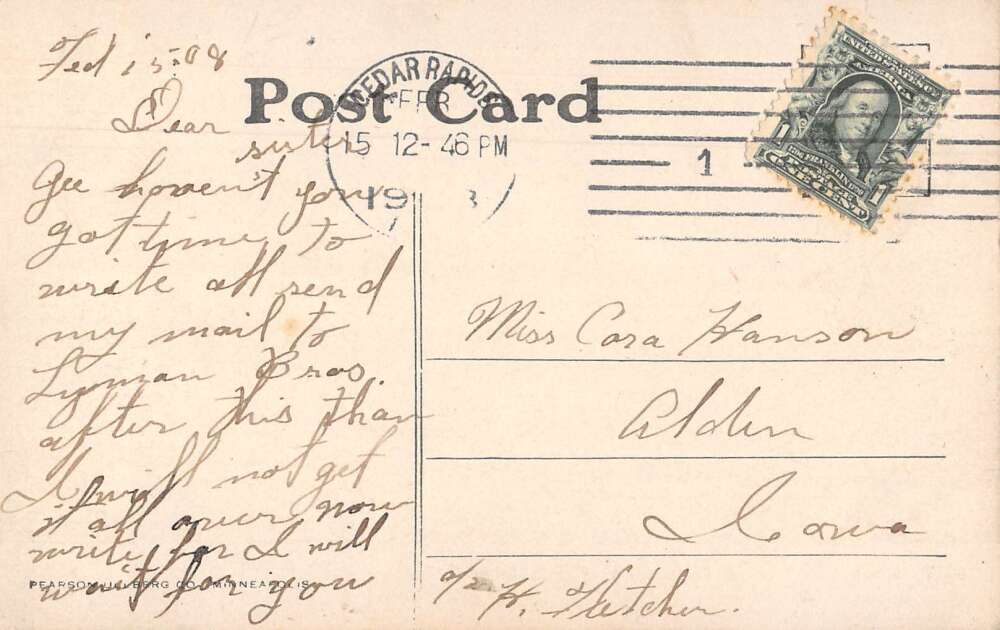 Feb 15-08
Post Card
CEDAR RAPIDS
FEB
15 12-46 PM
19 8
1
UNITED STATES OF
AMERICA
1 1
POSTAGE
ONE CENT
Dear
sister
Gee haven't you
got time to
write all send
my mail to
Lyman Bros.
after this than
I will not get
it all over now
write for I will
wait for you
PEARSON ULLBERG CO. MINNEAPOLIS
Miss Cora Hanson
Alden
Iowa
c/o H. Fletcher.